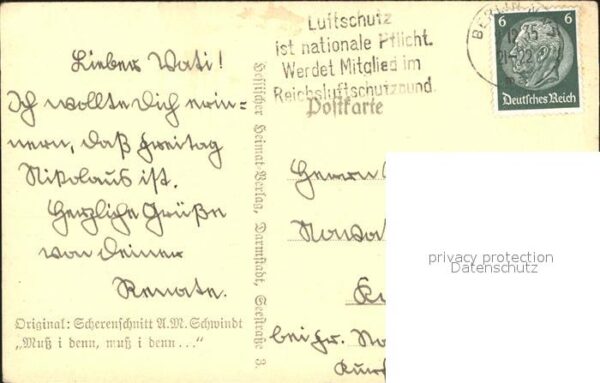 Lieber Vati!
Ich wollte Dich erin=
nern, daß Freitag
Nikolaus ist.
Herzliche Grüße
von Deiner
Renate.
Original: Scherenschnitt A.M. Schwindt
„Muß i denn, muß i denn..."
Hessischer Heimat-Verlag, Darmstadt, Seestraße 3.
Luftschutz
ist nationale Pflicht.
Werdet Mitglied im
Reichsluftschutzbund.
BERLIN
6 6
Deutsches Reich
Postkarte
Herrn
privacy protection
Datenschutz
bei Fr.